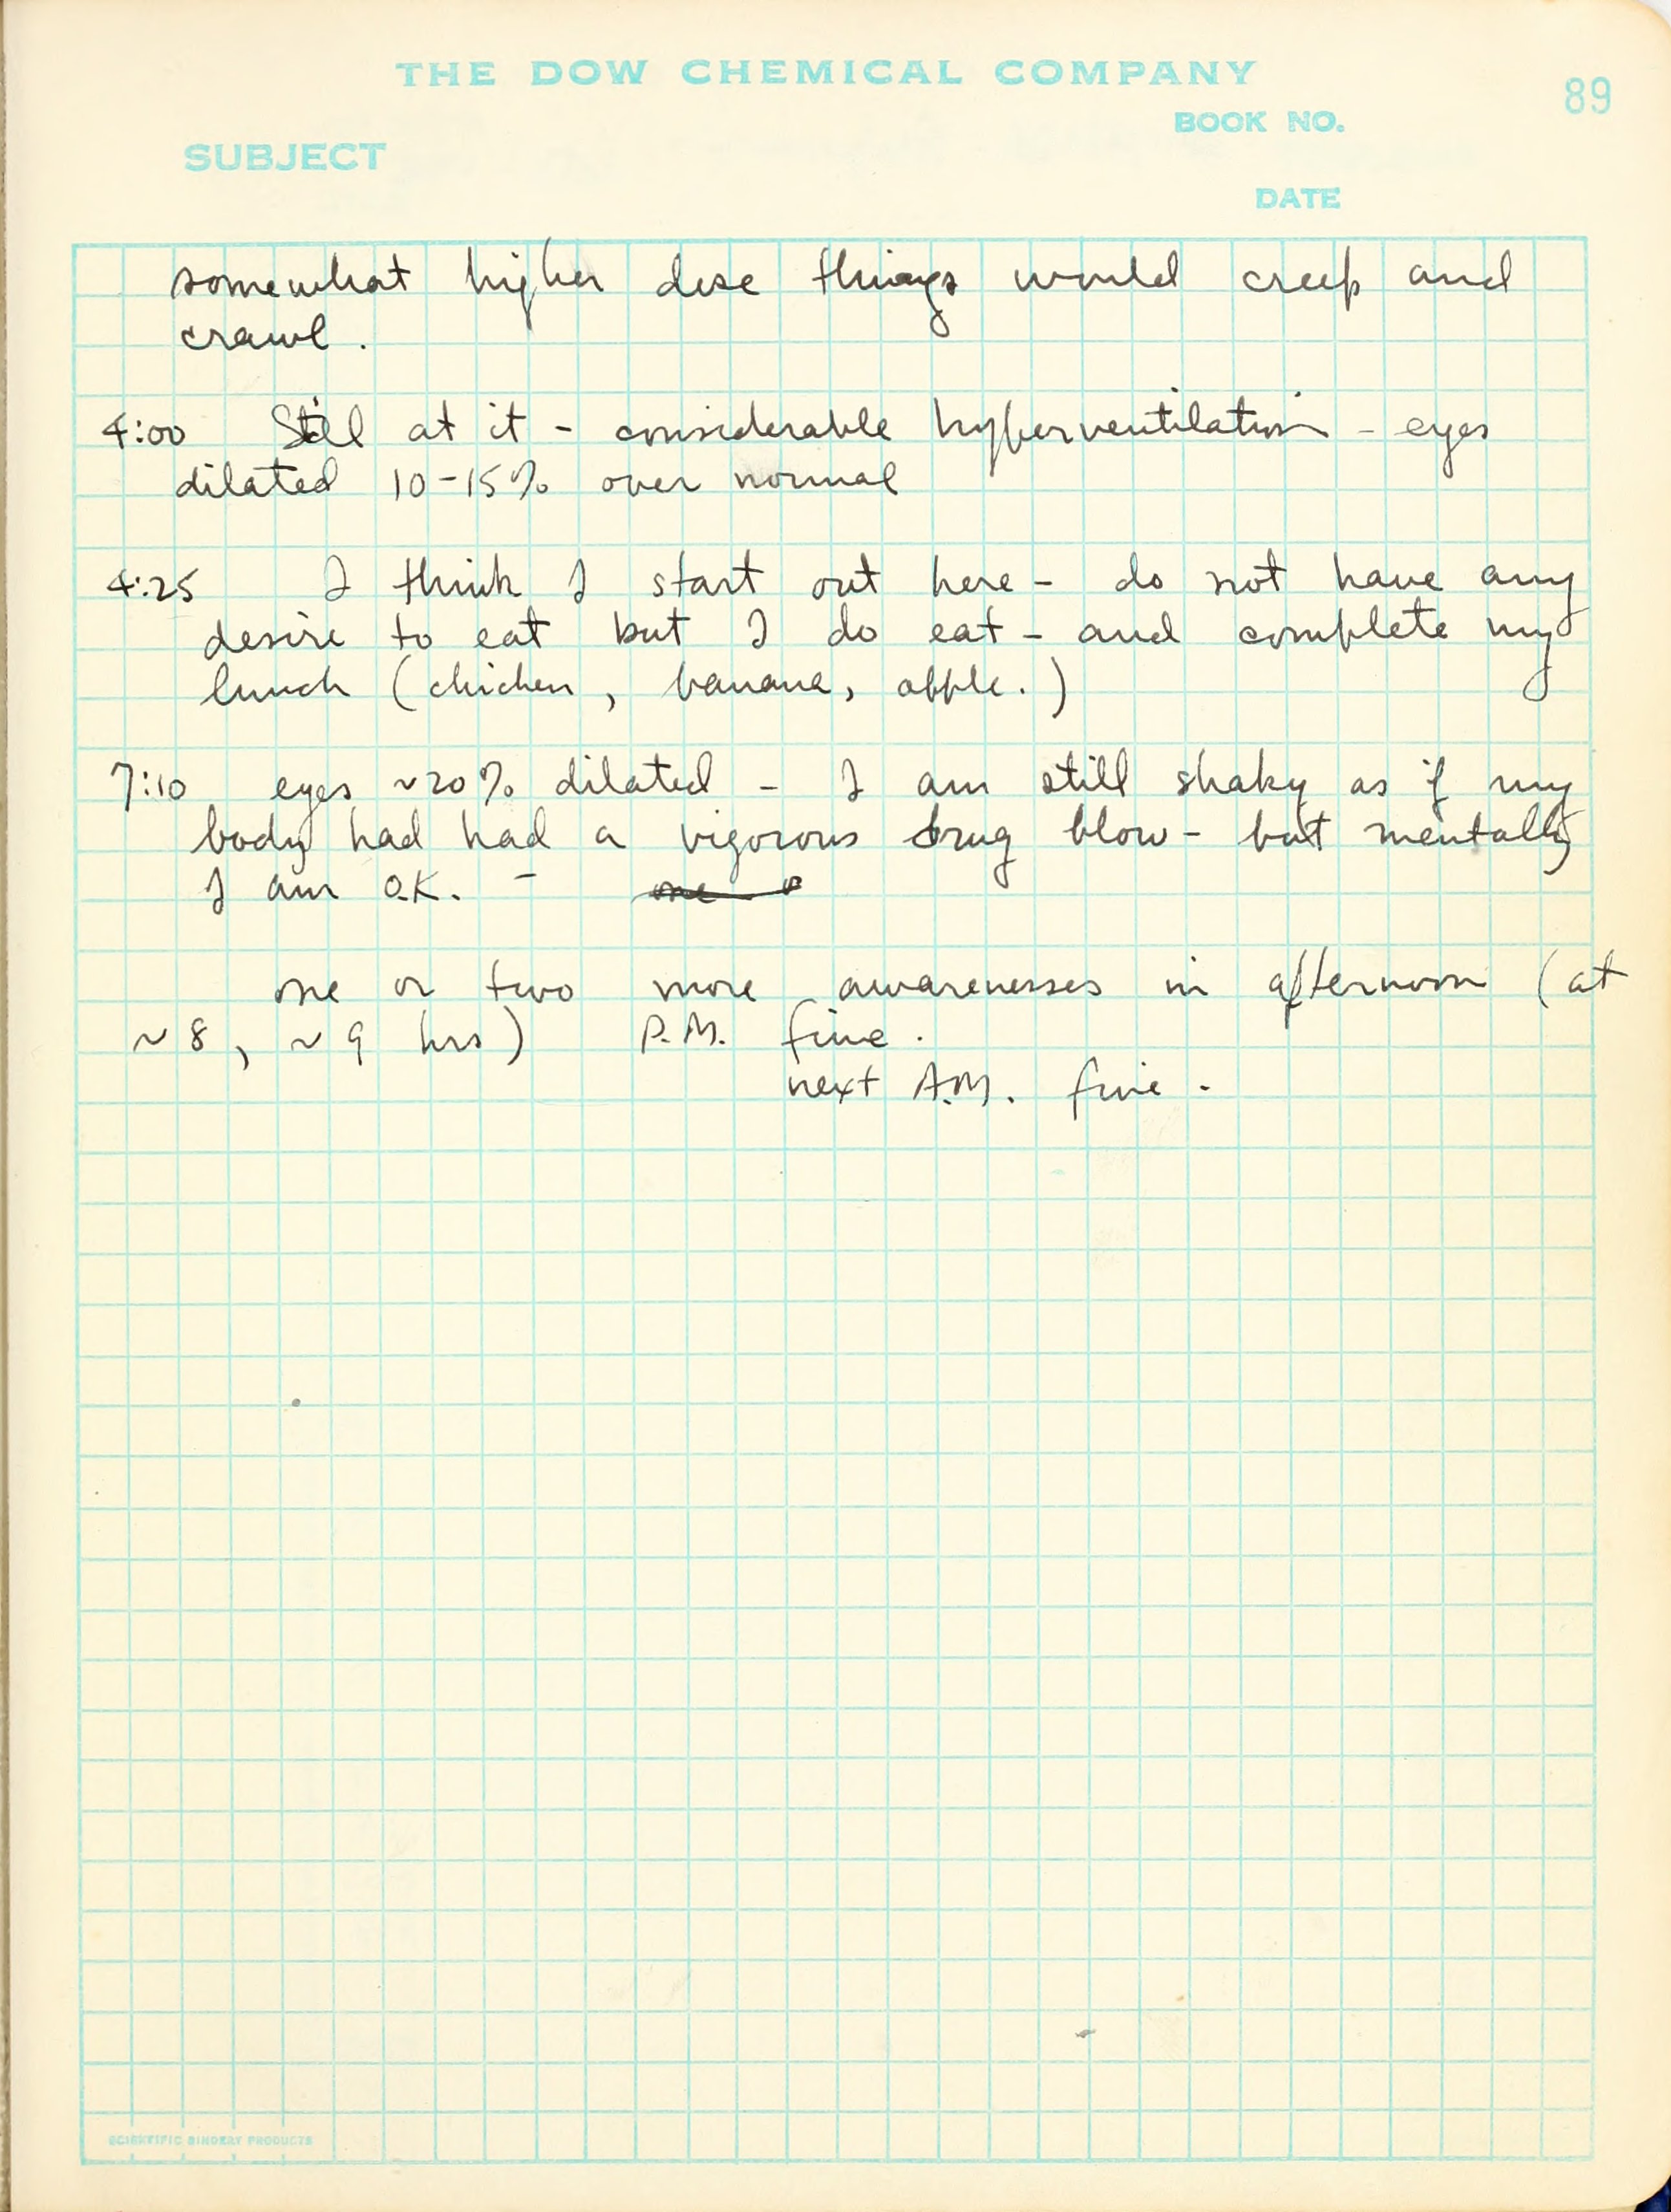 THE DOW CHEMICAL COMPANY
89
BOOK NO.
SUBJECT
DATE
somewhat higher dose things would creep and
crawl.
4:00 Still at it - considerable hyperventilation - eyes
dilated 10-15% over normal
4:25 I think I start out here - do not have any
desire to eat but I do eat - and complete my
lunch (chicken, banana, apple.)
7:10 eyes ~20% dilated - I am still shaky as if my
body had had a vigorous drug blow - but mentally
I am O.K. -
one or two more awarenesses in afternoon (at
~8, ~9 hrs) P.M. fine.
next A.M. fine.
SCIENTIFIC BINDERY PRODUCTS